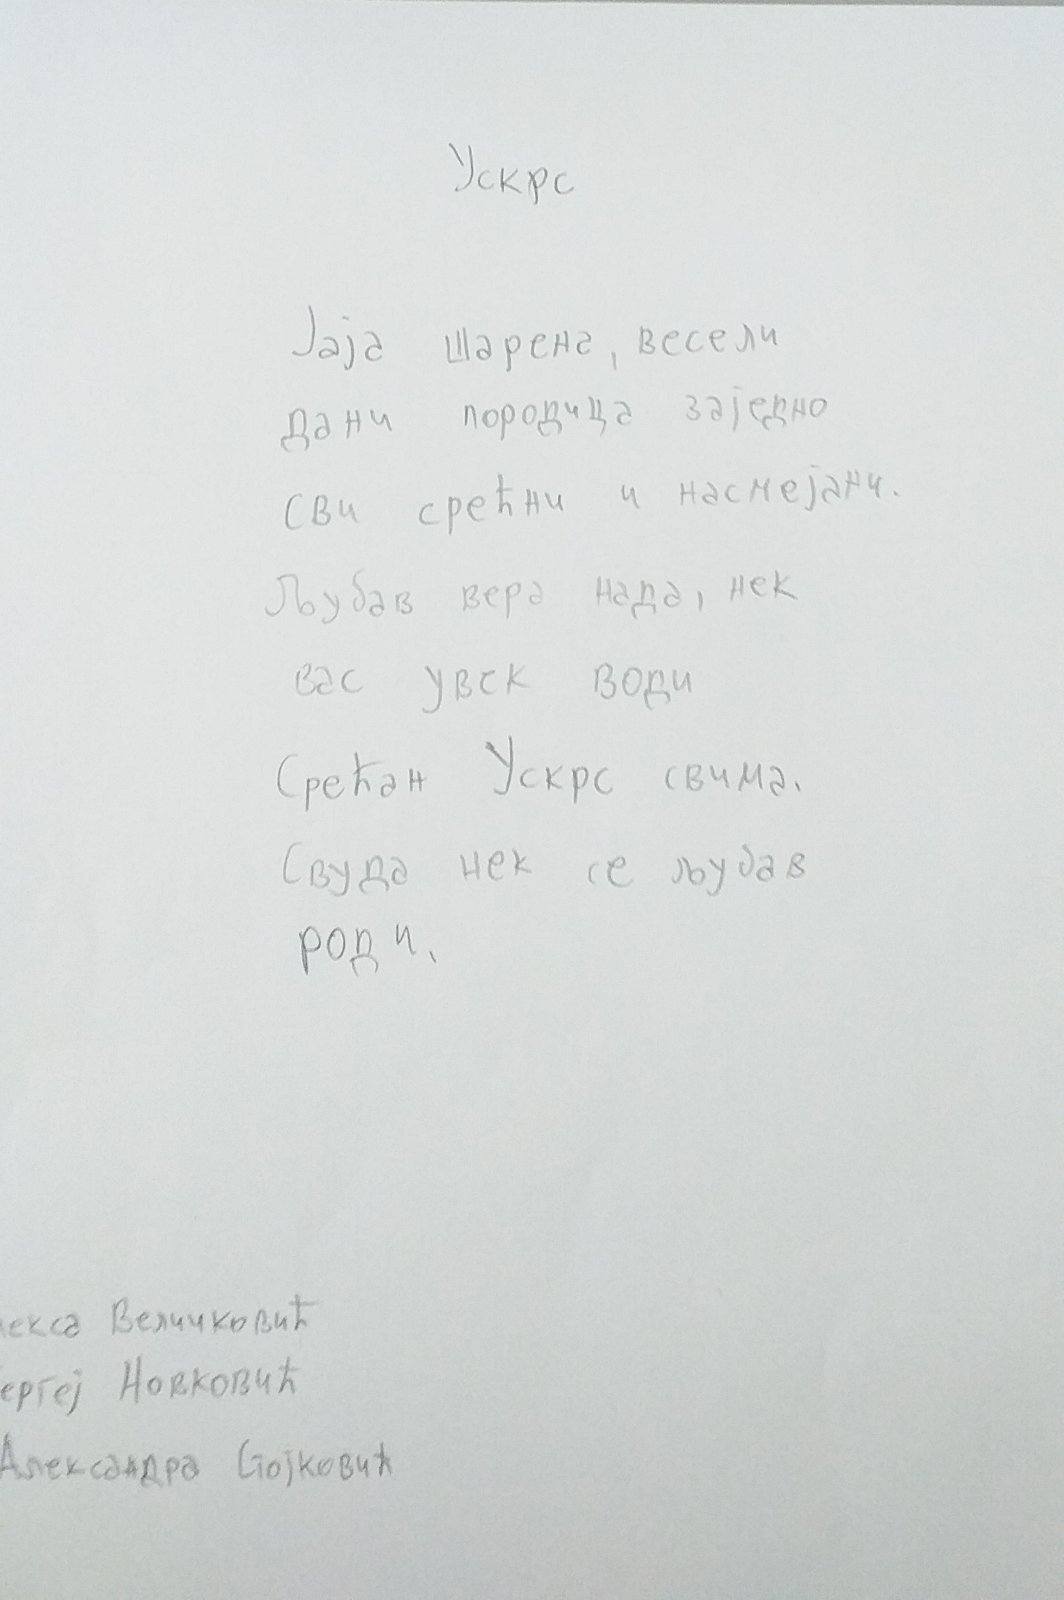 Ускрс
Јаја шарена, весели
дани породица заједно
сви срећни и насмејани.
Љубав вера нада, нек
вас увек води
Срећан Ускрс свима.
Свуда нек се љубав
роди.
лекса Величковић
ергеј Новковић
Александра Стојковић